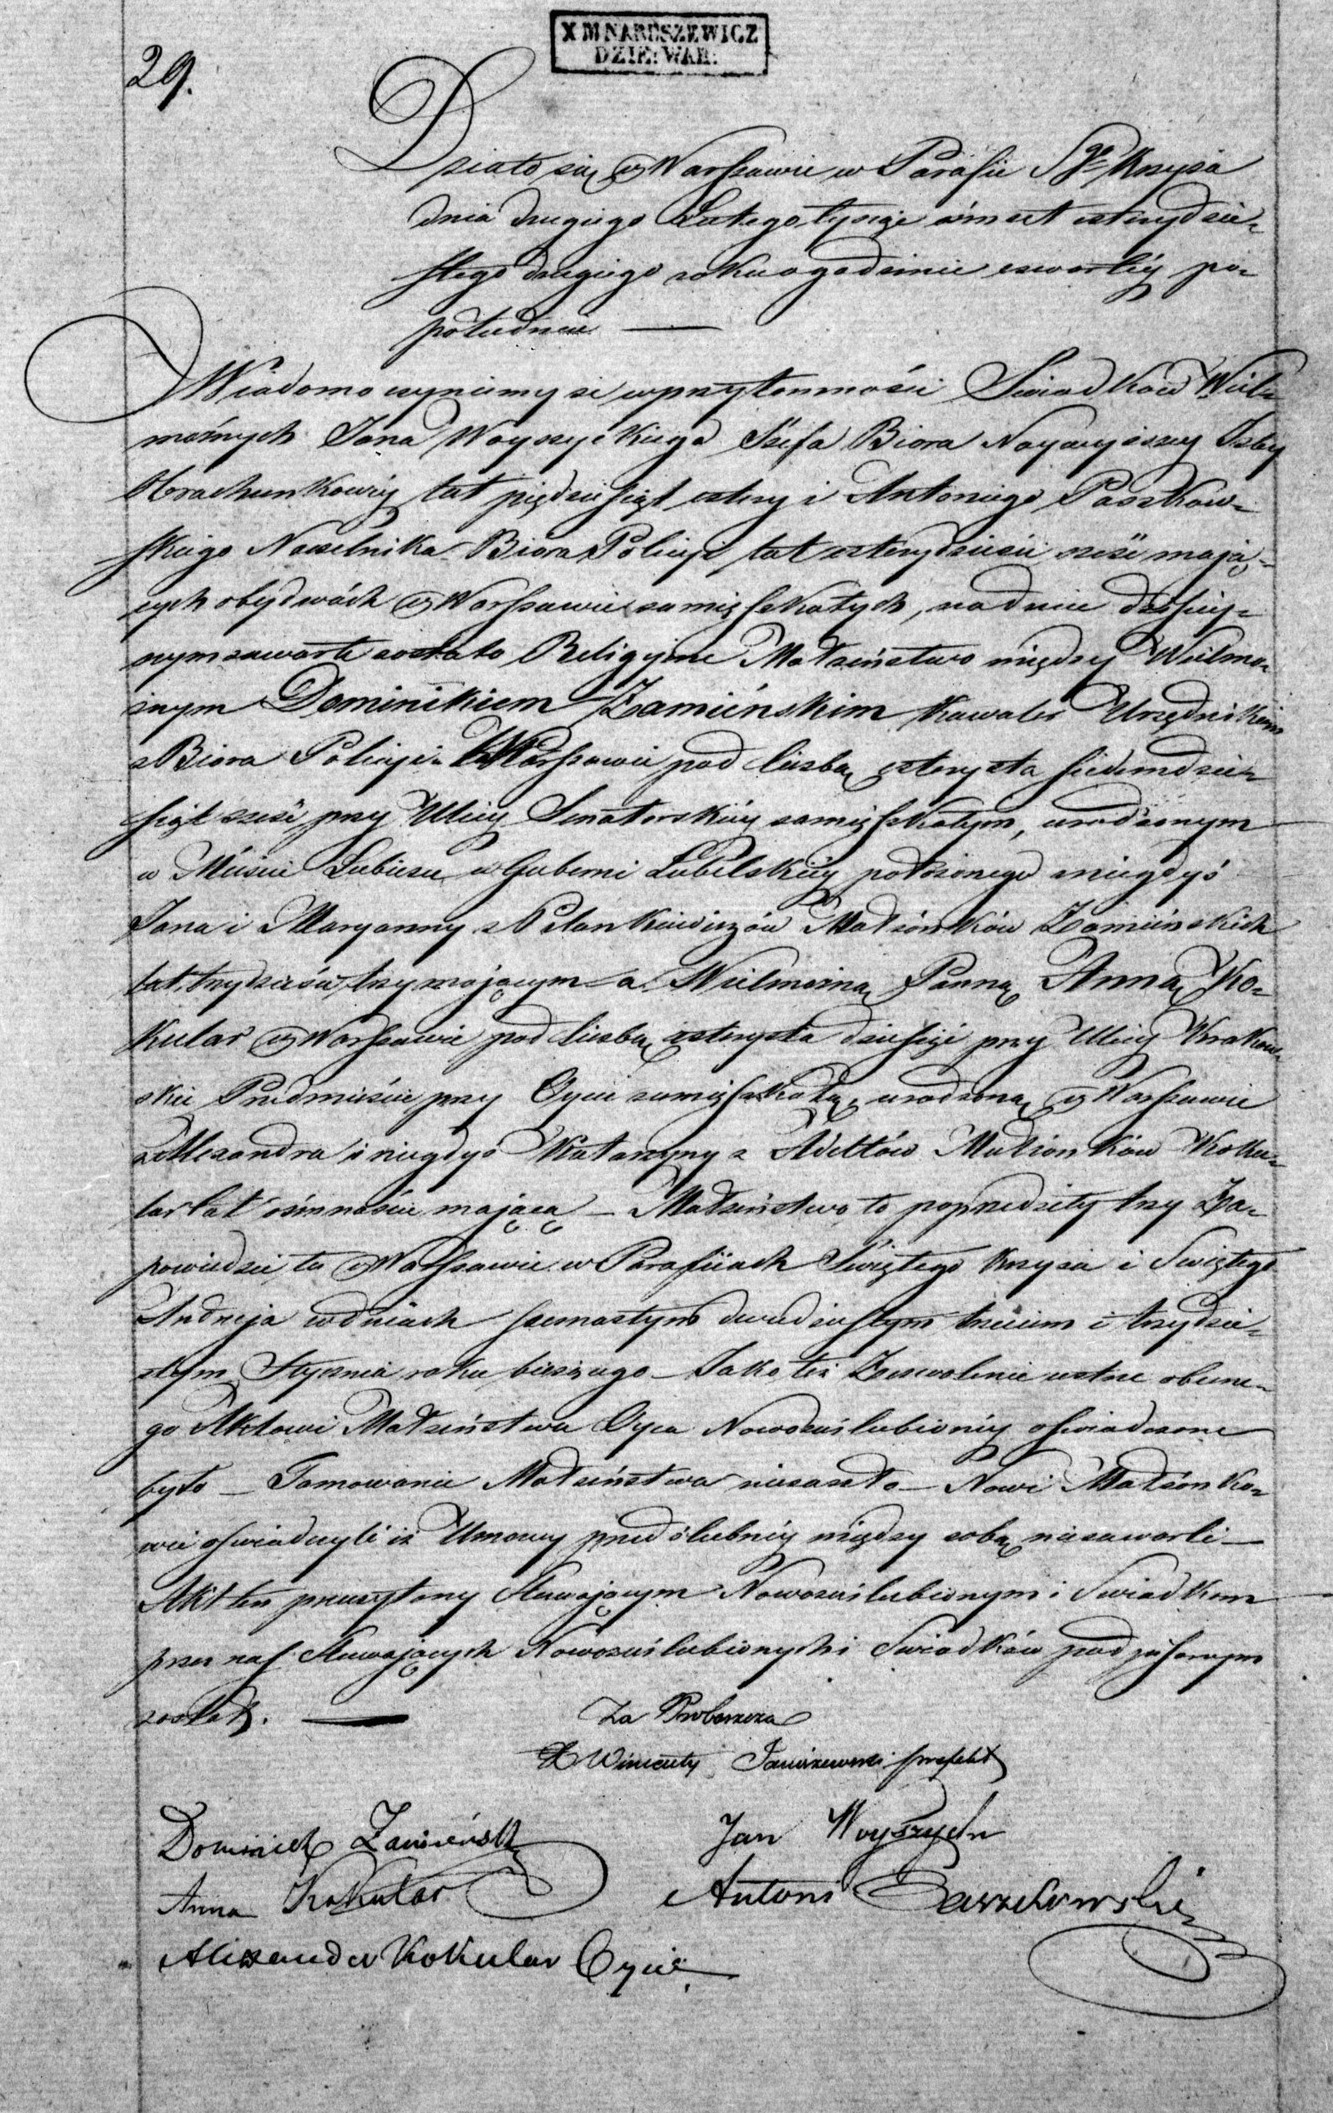 X M NARUSZEWICZ
DZIE: WAR:
29.
Działo się w Warszawie w Parafii Sgo Krzyża
dnia drugiego Lutego tysiąc ośmset czterydzie-
stego drugiego roku o godzinie czwartéy po-
południu —
Wiadomo czyniemy że w przytomności Swiadków Wiel-
możnych Jana Woyszyckiego Szefa Biora Naywyższey Izby
Obrachunkowéy lat pięćdziesiąt cztery i Antoniego Paszkow-
skiego Naczelnika Biora Policyi lat czterydzieści sześć mają-
cych obydwóch w Warszawie zamięszkałych, na dniu dzisiey-
szym zawarte zostało Religijne Małżeństwo między Wielmo-
żnym Dominikiem Zamieńskim Kawaler Urzędnikiem
z Biora Policyi w Warszawie pod liczbą czterysta siedmdzie-
siąt sześć przy Ulicy Senatorskiéy zamięszkałym, urodzonym
w Mieście Lubiczu w Guberni Lubelskiéy położonego z niegdyś
Jana i Maryanny z Małżonków Zamieńskich
lat trzydzieści trzy mającym – a Wielmożną Panną Anną Ko-
kular w Warszawie pod liczbą czterysta dziesięć przy Ulicy Krakow-
skie Przedmieście przy Oycu zamięszkałą, urodzoną w Warszawie
z Alexandra i niegdyś Katarzyny z Małżonków Koku-
lar lat ośmnaście mającą – Małżeństwo to poprzedziły trzy Za-
powiedzie tu w Warszawie w Parafiiach Świętego Krzyża i Swiętego
Andrzeja w dniach szesnastym dwudziestym trzecim i trzydzie-
stym Stycznia roku bieżącego – Jako też Zezwolenie ustne obecne-
go Aktowi Małżeństwa Oyca Nowozaślubionéy oświadczone
było – Tamowanie Małżeństwa niezaszło – Nowi Małżonko-
wie oświadczyli iż Umowy przedślubnéy między sobą niezawarli –
Akt ten przeczytany Stawającym Nowozaślubionym i Swiadkom
przez nas Stawających Nowozaślubionych i Swiadków podpisanym
został. —
Za Proboszcza
X Wincenty Janiszewski prefekt
Dominik Zamieński
Jan Woyszycki
Anna Kokular
Antoni Paszkowski
Alixander Kokular Oyciec